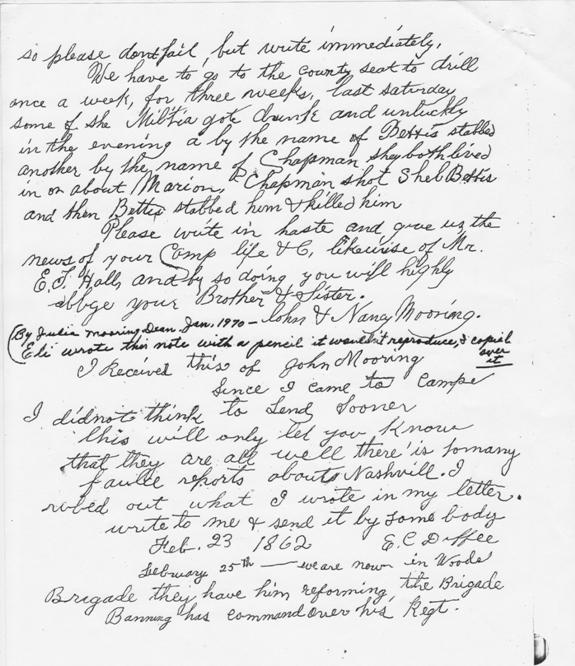 so please dont fail, but write immediately,
We have to go to the county seat to drill
once a week, for three weeks, last saturday
some of the Militia got drunk and unluckly
in the evening a by the name of Bettis stabbed
another by the name of Chapman they both lived
in or about Marion, Chapman shot Sheb Bettis
and then Bettis stabbed him & killed him
Please write in haste and give us the
news of your Camp life & C, likewise of Mr.
E. T. Hall, and by so doing you will highly
abbge your Brother & Sister.
John & Nancy Mooring.
(By Julia Mooring Dean. Jan. 1970 -
Eli wrote this note with a pencil it wouldn't reproduce, I copied
over
it
I received this of John Mooring
Since I came to Campe
I didnot think to Send Sooner
this will only let you Know
that they are all well there is somany
faulce reports abouts Nashvill. I
robed out what I wrote in my letter.
write to me & send it by some body
Feb. 23 1862 E. C Diffee
February 25th — we are now in Woods
Brigade they have him reforming the Brigade
Banning has command over his Regt.